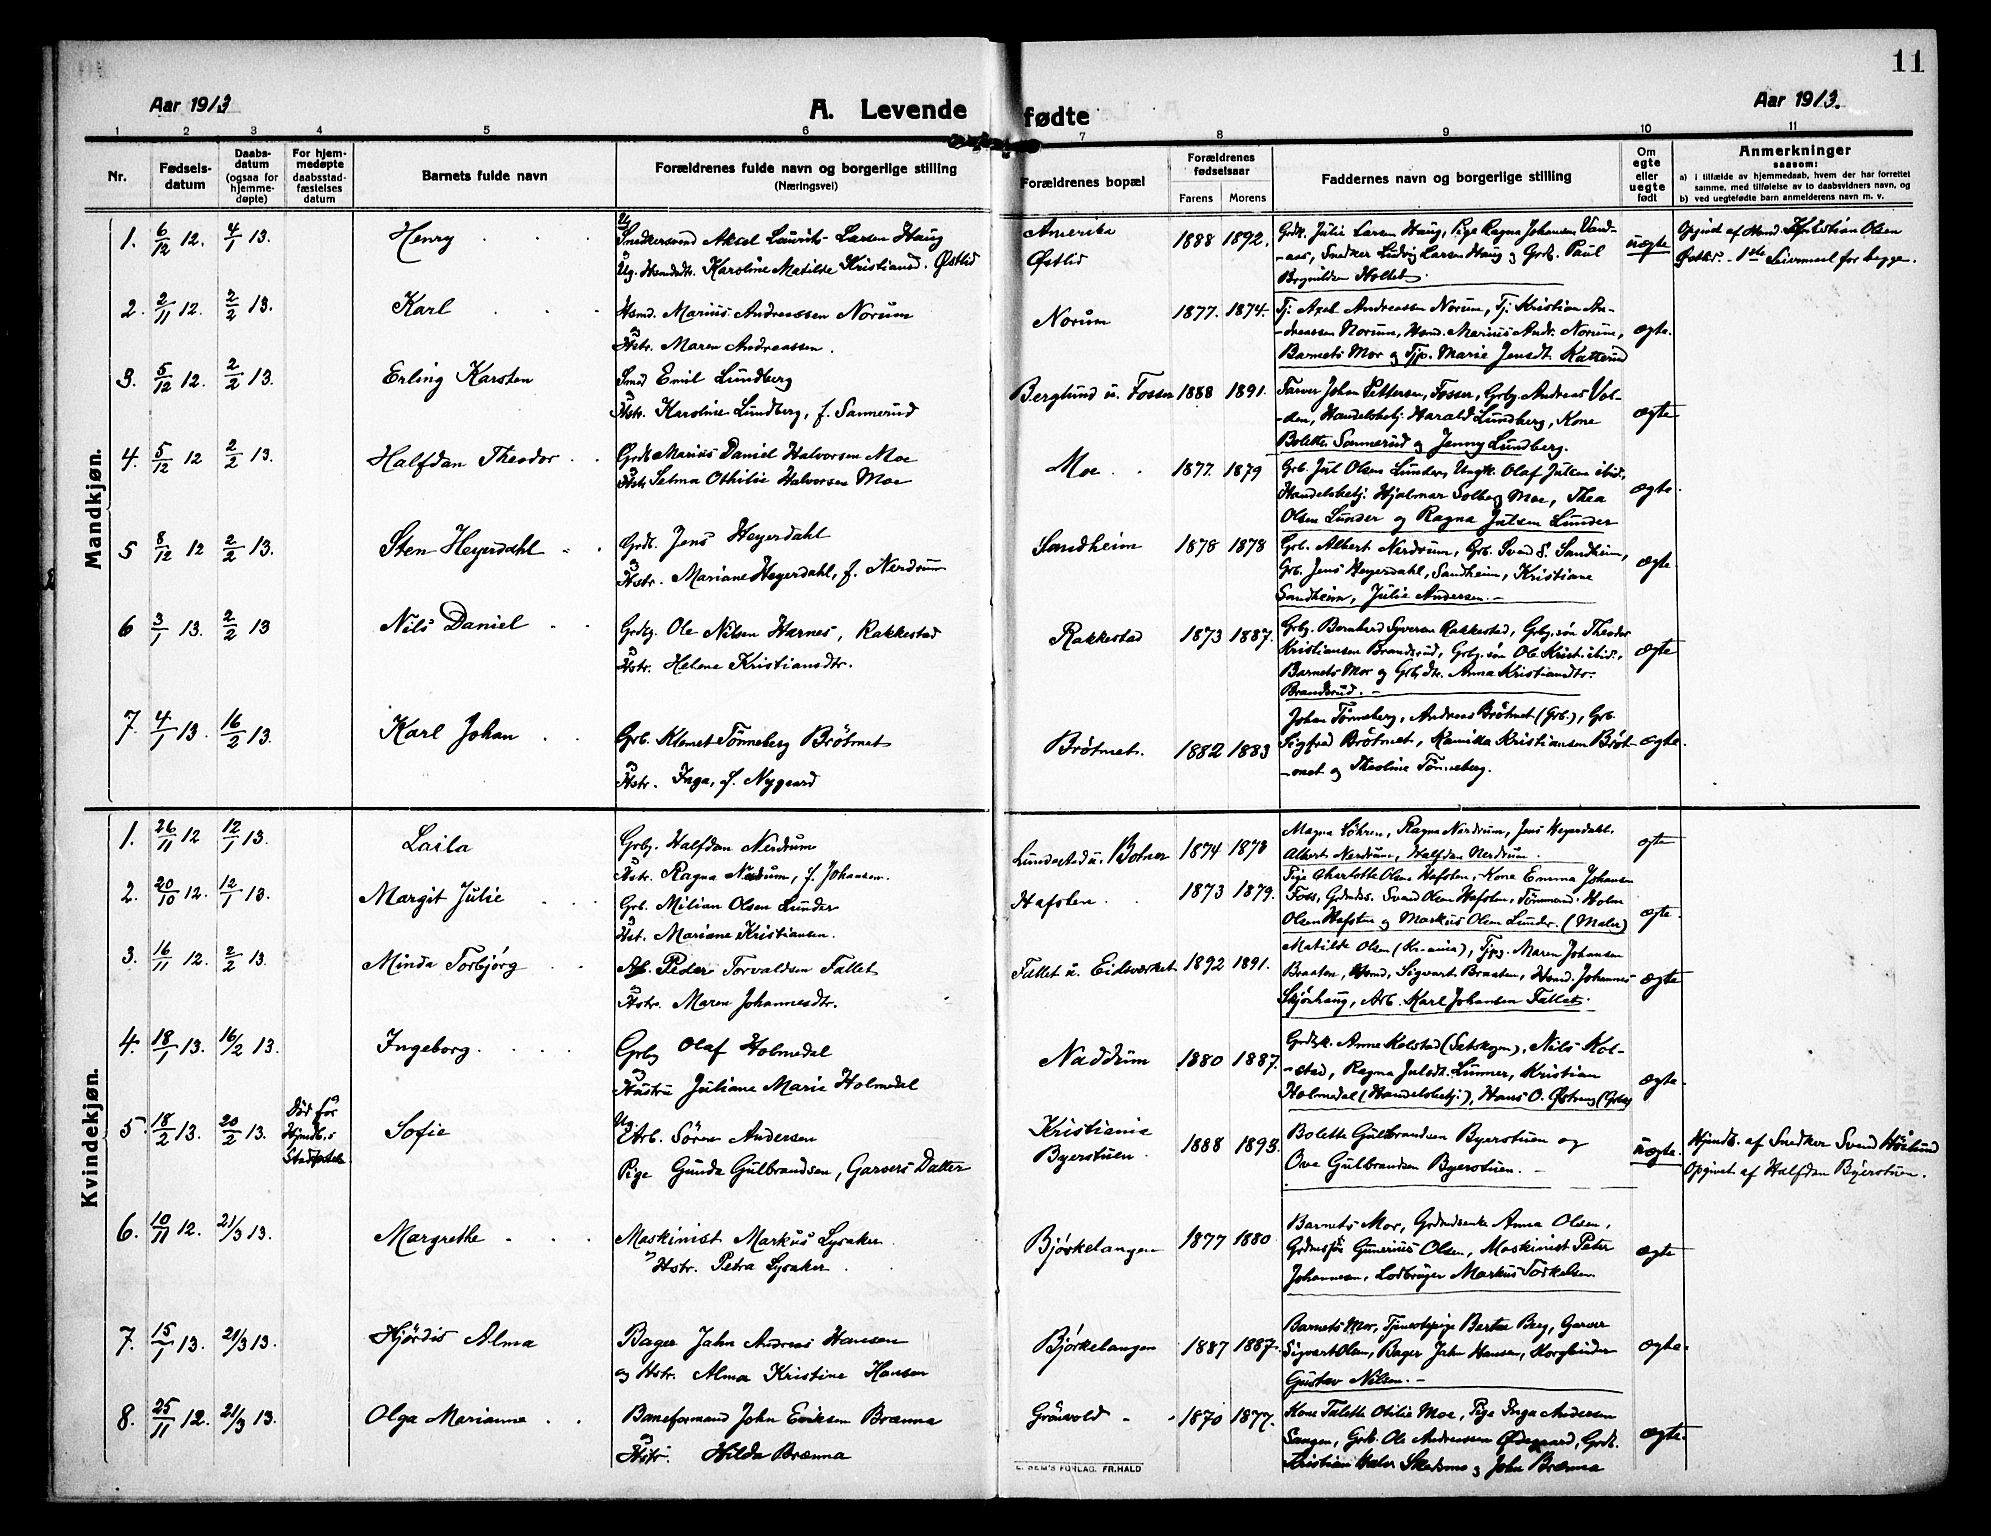 11
Aar 1913
A. Levende fødte
Aar 1913.
1 2 3 4 5 6 7 8 9 10 11
Nr.
Fødsels-
datum
Daabs-
datum
(ogsaa for
hjemme-
døpte)
For hjem-
medøpte
daabsstad-
fæstelses
datum
Barnets fulde navn
Forældrenes fulde navn og borgerlige stilling
(Næringsvei)
Forældrenes bopæl
Forældrenes
fødselsaar
Farens Morens
Faddernes navn og borgerlige stilling
Om
egte
eller
uegte
født
Anmerkninger
saasom:
a) i tilfælde av hjemmedaab, hvem der har forrettet
samme, med tilføielse av to daabsvidners navn, og
b) ved uegtefødte barn anmelderens navn m. v.
Mandkjøn.
1. 6/12 12. 4/1 13. Henry
Ug Snekkersvend Aksel Laurits Larsen Haug
Ug. Hsmdsdtr. Karoline Matilde Kristiansd. Østlid
Amerika
Østlid
1888 1892.
Grdk. Julie Larsen Haug, Pige Ragna Johansen Vand-
-aas, Snedker Ludvig Larsen Haug og Grdb. Paul
Brynildsen Holtet.
uægte
Opgivet af Hsmd. Kristian Olsen
Østlid. - 1ste Leiermaal for begge.
2. 2/11 12. 2/2 13. Karl
Hsmd. Marius Andreassen Norum
Hstr. Maren Andreassen.
Norum
1877. 1874.
Tj. Axel Andreassen Norum, Tj. Kristian An-
-dreassen Norum, Hsmd. Marius Andr. Norum,
Barnets Mor og Tjp. Marie Jensdt. Katterud
ægte.
3. 5/12 12. 2/2 13. Erling Karsten
Smed Emil Lundberg
Hstr. Karoline Lundberg, f. Sannerud
Berglund u. Fosser
1888 1891.
Farver Johan Pettersen, Fosser, Grbg. Andreas Vol-
-den, Handelsbetj. Harald Lundberg, Kone
Bolette Sannerud og Jenny Lundberg.
ægte
4. 5/12 12 2/2 13. Halfdan Theodor
Grdb Marius Daniel Halvorsen Moe
Hstr. Selma Othilie Halvorsen Moe
Moe.
1877. 1879
Grb. Jul Olsen Lunder, Ungk. Olaf Julsen ibid.
Handelsbetj. Hjalmar Solberg Moe, Thea
Olsen Lunder og Ragna Julsen Lunder
ægte.
5 8/12 12 2/2 13. Sten Heyerdahl
Grdb. Jens Heyerdahl
Hstr. Mariane Heyerdahl, f. Nerdrum
Sandheim
1878 1878
Grb. Albert Nerdrum, Grb. Svend S. Sandheim,
Grb. Jens Heyerdahl, Sandheim, Kristiane
Sandheim, Julie Andersen.
ægte
6 3/1 13. 2/2 13 Nils Daniel
Grdbg. Ole Nilsen Harnes, Rakkestad
Hstr. Helene Kristiansdtr.
Rakkestad
1873 1887.
Grbg. Bernhard Syversen Rakkestad, Grbg.søn Theodor
Kristiansen Branderud, Grbg.søn Ole Krist. ibid.,
Barnets Mor og Grbg dtr. Anna Kristiansdtr.
Branderud.
ægte
7. 4/1 13. 16/2 13. Karl Johan
Grb. Klemet Tönneberg Brötmet
Hstr. Inga, f. Nygaard
Brötmet.
1882 1883
Johan Tönneberg, Andreas Brötmet (Grb.), Grb.
Sigfred Brötmet, Kamilla Kristiansen Bröt-
-met og Theoline Tönneberg.
ægte.
Kvindekjøn.
1. 26/11 12 12/1 13. Laila
Grbg. Halfdan Nerdrum
Hstr. Ragna Nerdrum, f. Johansen.
Lundestad u. Botner
1874 1878
Magna Løhren, Ragna Nerdrum, Jens Heyerdahl.
Albert Nerdrum, Halfdan Nerdrum.
ægte
2. 20/10 12. 12/1 13. Margit Julie
Grb. Milian Olsen Lunder
Hst. Mariane Kristiansen.
Hafsten
1873 1879.
Pige Charlotte Olsen Hafsten, Kone Emma Johansen
Foss, Grdmds. Svend Olsen Hafsten, Tømmermd. Holm
Olsen Hafsten og Markus Olsen Lunder. (Maler)
ægte.
3. 16/11 12. 2/2 13. Minda Torbjørg
Ab. Peder Torvaldsen Tallet
Hstr. Maren Johannesdtr.
Tallet u. Eidsværket
1892 1891.
Matilde Olsen (Kr-ania), Tjpg. Maren Johansen
Braaten, Hsmd. Sigvart Braaten, Hsmd. Johannes
Skjönhaug, Arb. Karl Johansen Tallet.
ægte
4. 18/1 13. 16/2 13. Ingeborg.
Grbg Olaf Holmedal
Hustru Juliane Marie Holmedal
Naddrum
1880 1887.
Grdbk. Anne Kolstad (Setskogen), Nils Kol-
-stad, Ragna Julsdt. Lunner, Kristian
Holmedal (Handelsbetj.), Hans O. Østreng (Grbg)
ægte.
5. 18/2 13. 20/2 13. Död før
Hjmdb.s
Stadfæstelse
Sofie
Ug Arb. Sören Andersen
Pige Gunda Gulbrandsen, Garvers Datter
Kristiania
Byerstuen.
1888 1893.
Bolette Gulbrandsen Byerstuen og
Ove Gulbrandsen Byerstuen.
uægte.
Hjmdb. af Snedker Svend Höilund
Opgivet af Halfdan Byerstuen.
6. 10/11 12. 21/3 13. Margrethe
Maskinist Markus Lysaker
Hstr. Petra Lysaker
Bjørkelangen
1877 1880
Barnets Mor, Grdmdsenke Anna Olsen,
Grdmdssøn Gunerius Olsen, Maskinist Peter
Johannesen, Lodbruger Markus Torkelsen.
ægte
7. 15/1 13. 21/3 13. Hjördis Alma
Bager Jahn Andreas Hansen
og Hstr. Alma Kristine Hansen
Bjørkelangen
1887 1887.
Barnets Mor, Tjenestepige Berta Berg, Garver
Sigvart Olsen, Bager Jahn Hansen, Korgbinder
Gustav Nilsen.
ægte.
8. 25/11 12. 21/3 13. Olga Marianne
Baneformand John Eriksen Brænna
Hstr. Hilda Brænna
Grönvold
1870 1877.
Kone Talette Otilie Moe, Pige Inga Andersen
Sangen, Grb. Ole Andreassen Ødegaard, Grdb.
Kristian Haler Skedsmo og John Brænna
ægte.
E. SEM'S FORLAG. FR.HALD